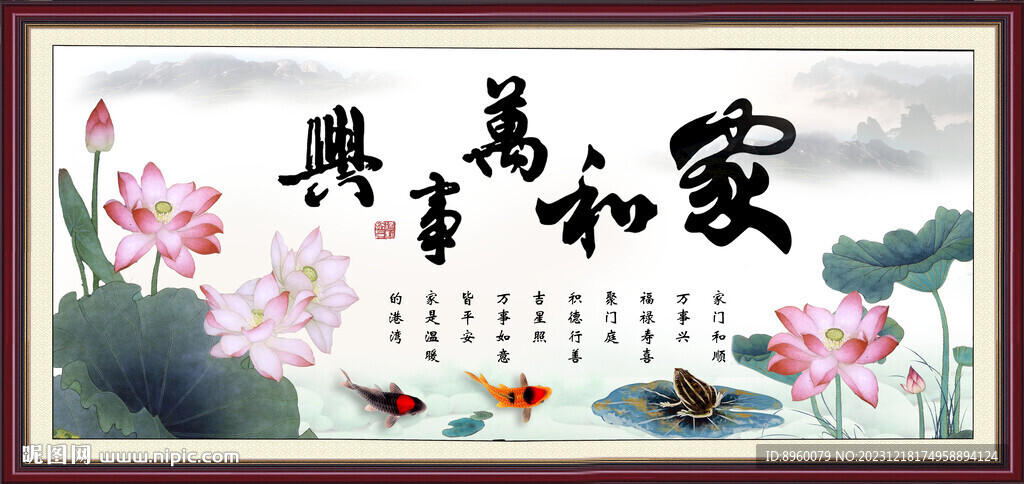 家和萬事興
家门和顺
万事兴
福禄寿喜
聚门庭
积德行善
吉星照
万事如意
皆平安
家是温暖
的港湾
昵图网 www.nipic.com
ID:8960079 NO:20231218174958894124